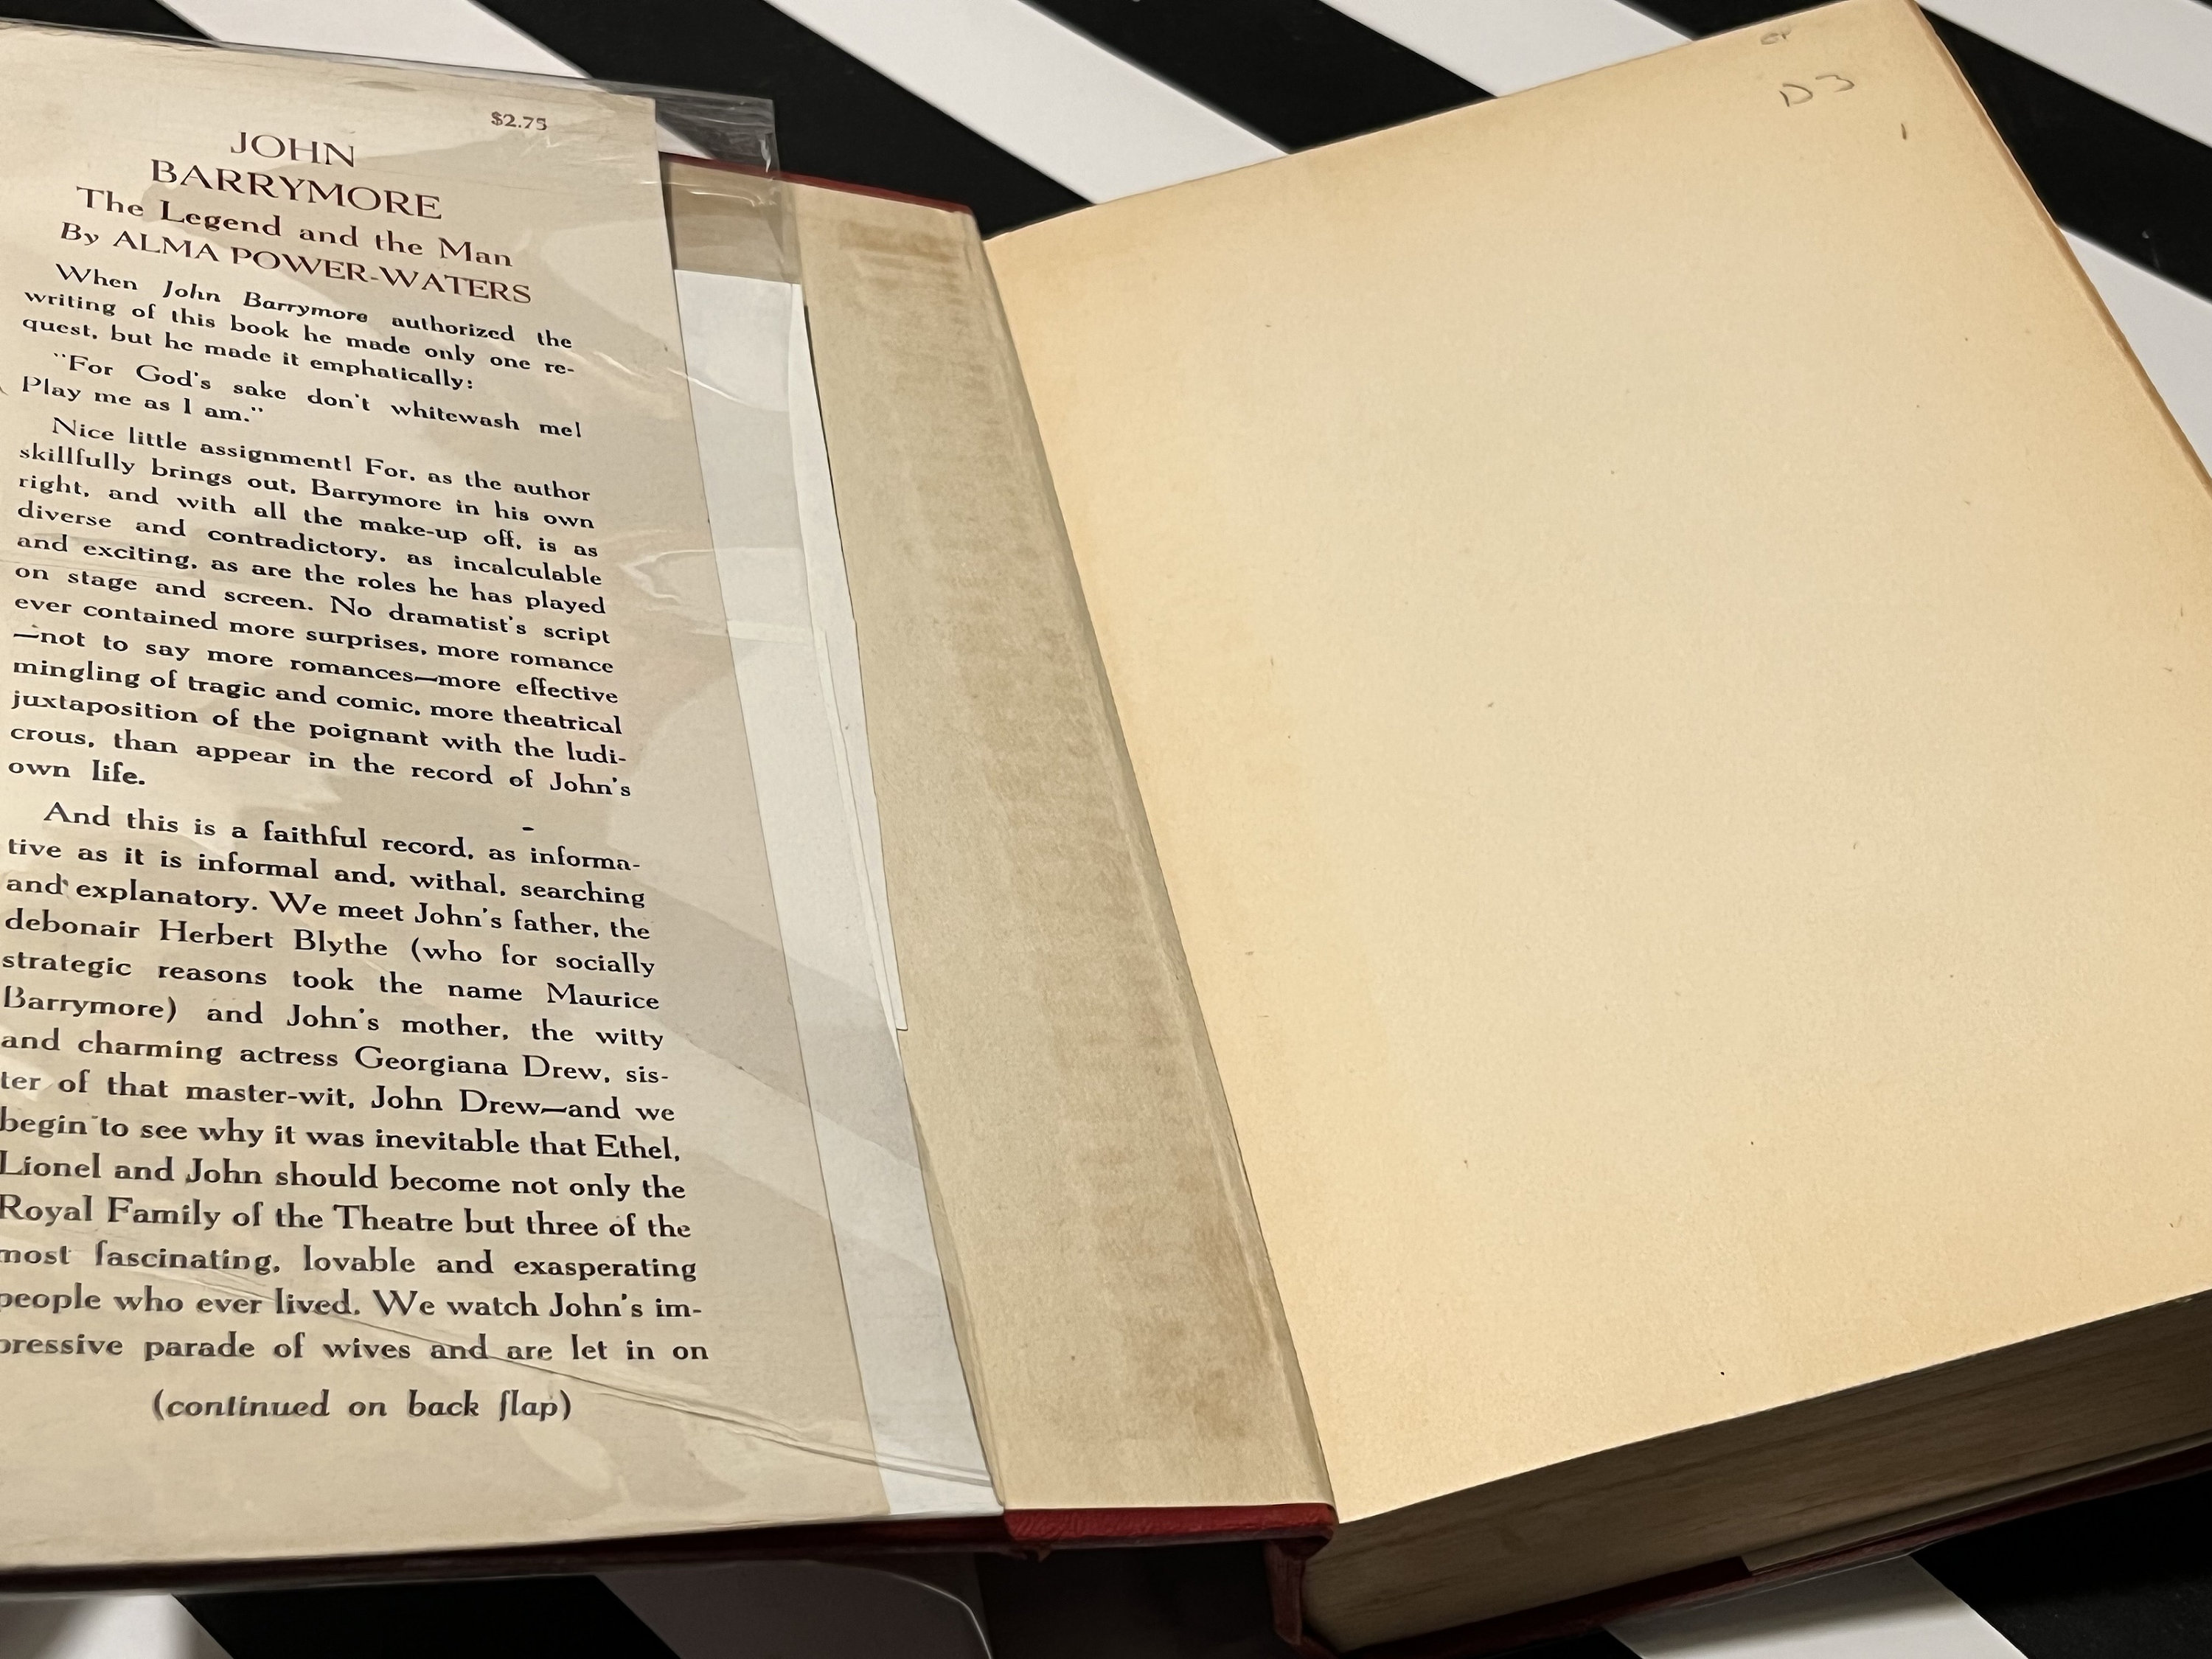 $2.75
JOHN
BARRYMORE
The Legend and the Man
By ALMA POWER-WATERS
When John Barrymore authorized the
writing of this book he made only one re-
quest, but he made it emphatically:
"For God's sake don't whitewash me!
Play me as I am."
Nice little assignment! For, as the author
skillfully brings out, Barrymore in his own
right, and with all the make-up off, is as
diverse and contradictory, as incalculable
and exciting, as are the roles he has played
on stage and screen. No dramatist's script
ever contained more surprises, more romance
—not to say more romances—more effective
mingling of tragic and comic, more theatrical
juxtaposition of the poignant with the ludi-
crous, than appear in the record of John's
own life.
And this is a faithful record, as informa-
tive as it is informal and, withal, searching
and explanatory. We meet John's father, the
debonair Herbert Blythe (who for socially
strategic reasons took the name Maurice
Barrymore) and John's mother, the witty
and charming actress Georgiana Drew, sis-
ter of that master-wit, John Drew—and we
begin to see why it was inevitable that Ethel,
Lionel and John should become not only the
Royal Family of the Theatre but three of the
most fascinating, lovable and exasperating
people who ever lived. We watch John's im-
pressive parade of wives and are let in on
(continued on back flap)
D3